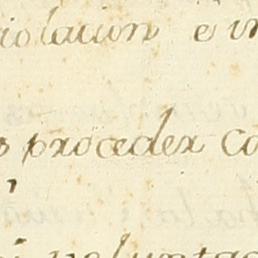 iolacion é in
s proceder co
voluntad